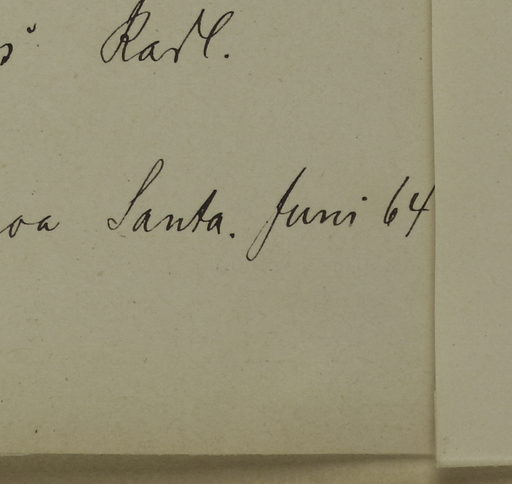 Radl.
oa Santa. Juni 64